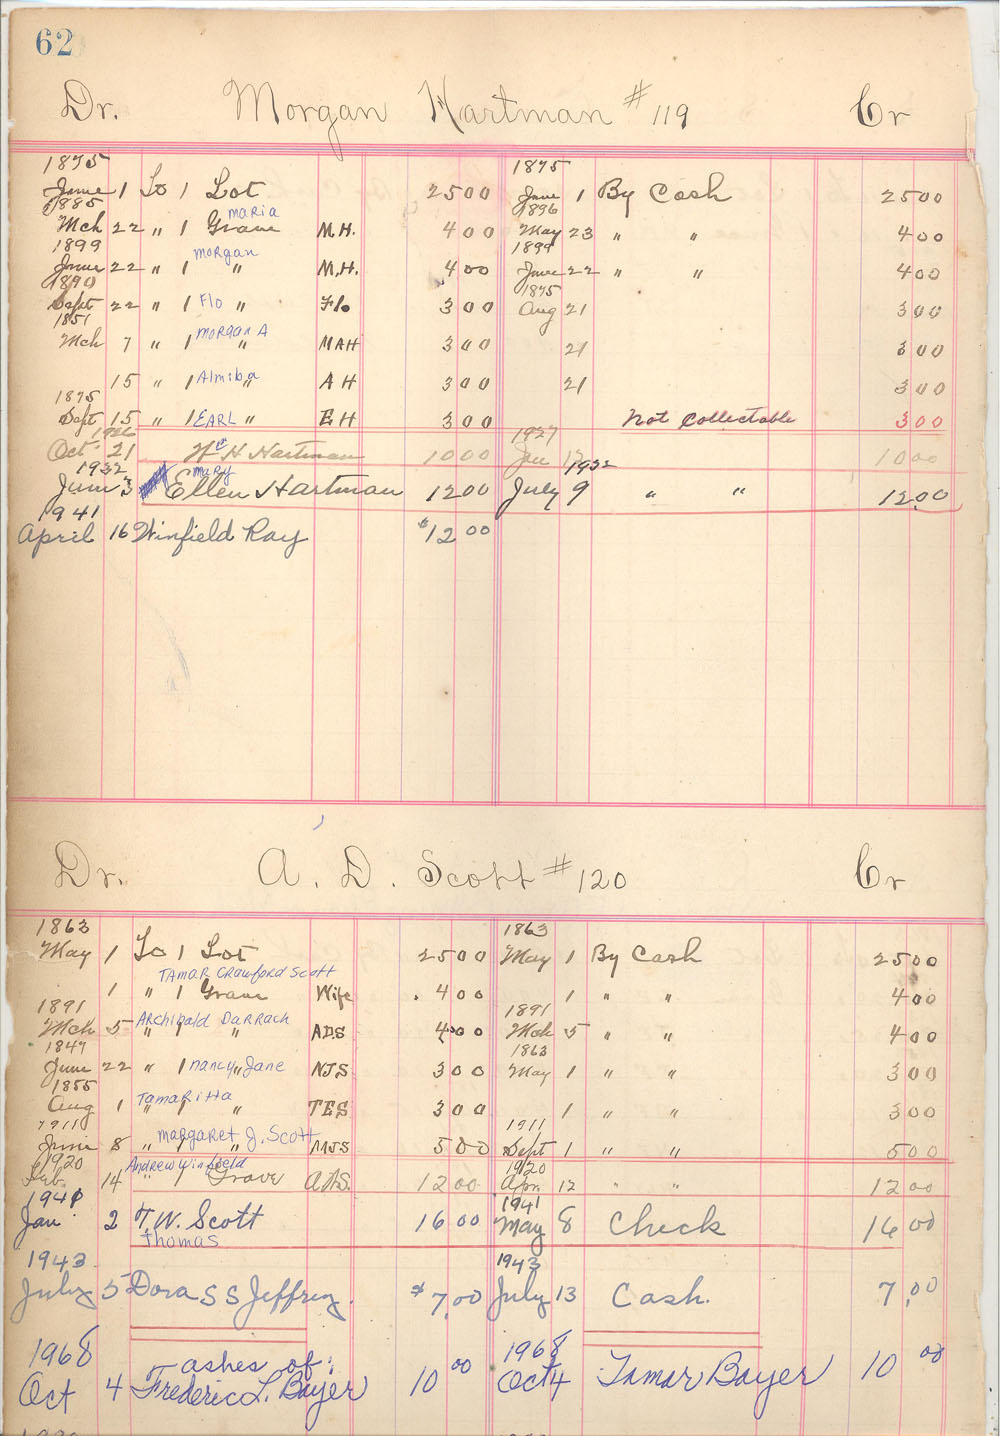 62
Dr. Morgan Hartman # 119 Cr
1875 1875
June 1 To 1 Lot 25 00 June 1 By Cash 25 00
1885 1896
maria
Mch 22 " 1 Grave M.H. 4 00 May 23 " " 4 00
1899 1899
morgan
June 22 " 1 " M.H. 4 00 June 22 " " 4 00
1890 1875
Sept 22 " 1 Flo " Flo 3 00 Aug 21 3 00
1851
morgan A
Mch 7 " 1 " MAH 3 00 21 3 00
15 " 1 Almiba " A H 3 00 21 3 00
1875
Sept 15 " 1 EARL " E H 3 00 Not Collectable 3 00
1926 1927
Oct 21 Wm H Hartman 10 00 Jan 12 10 00
1932 1932
mary
June 3 Ellen Hartman 12 00 July 9 " " 12.00
1941
April 16 Winfield Ray $12 00
Dr. A. D. Scott # 120 Cr
1863 1863
May 1 To 1 Lot 25 00 May 1 By Cash 25 00
TAMAR CRawford Scott
1 " 1 Grave Wife 4 00 1 " " 4 00
1891 1891
ARchibald DaRRach
Mch 5 " 1 " ADS 4 00 Mch 5 " " 4 00
1847 1863
June 22 " 1 nancy " Jane NJS 3 00 May 1 " " 3 00
1855
TamaRitta
Aug 1 " 1 " TES 3 00 1 " " 3 00
1911 1911
maRgaRet J. Scott
June 8 " 1 " MJS 5 00 Sept 1 " " 5 00
1920 1920
Andrew Winfield
Feb. 14 " 1 Grave A.W.S. 12 00 Apr. 12 " " 12 00
1941 1941
Jan 2 T. W. Scott 16 00 May 8 Check 16 00
thomas
1943 1943
July 5 Dora S S Jeffrey. $7.00 July 13 Cash. 7.00
1968 1968
ashes of:
Oct 4 Frederic L. Bayer 10 00 Oct 4 Tamar Bayer 10 00